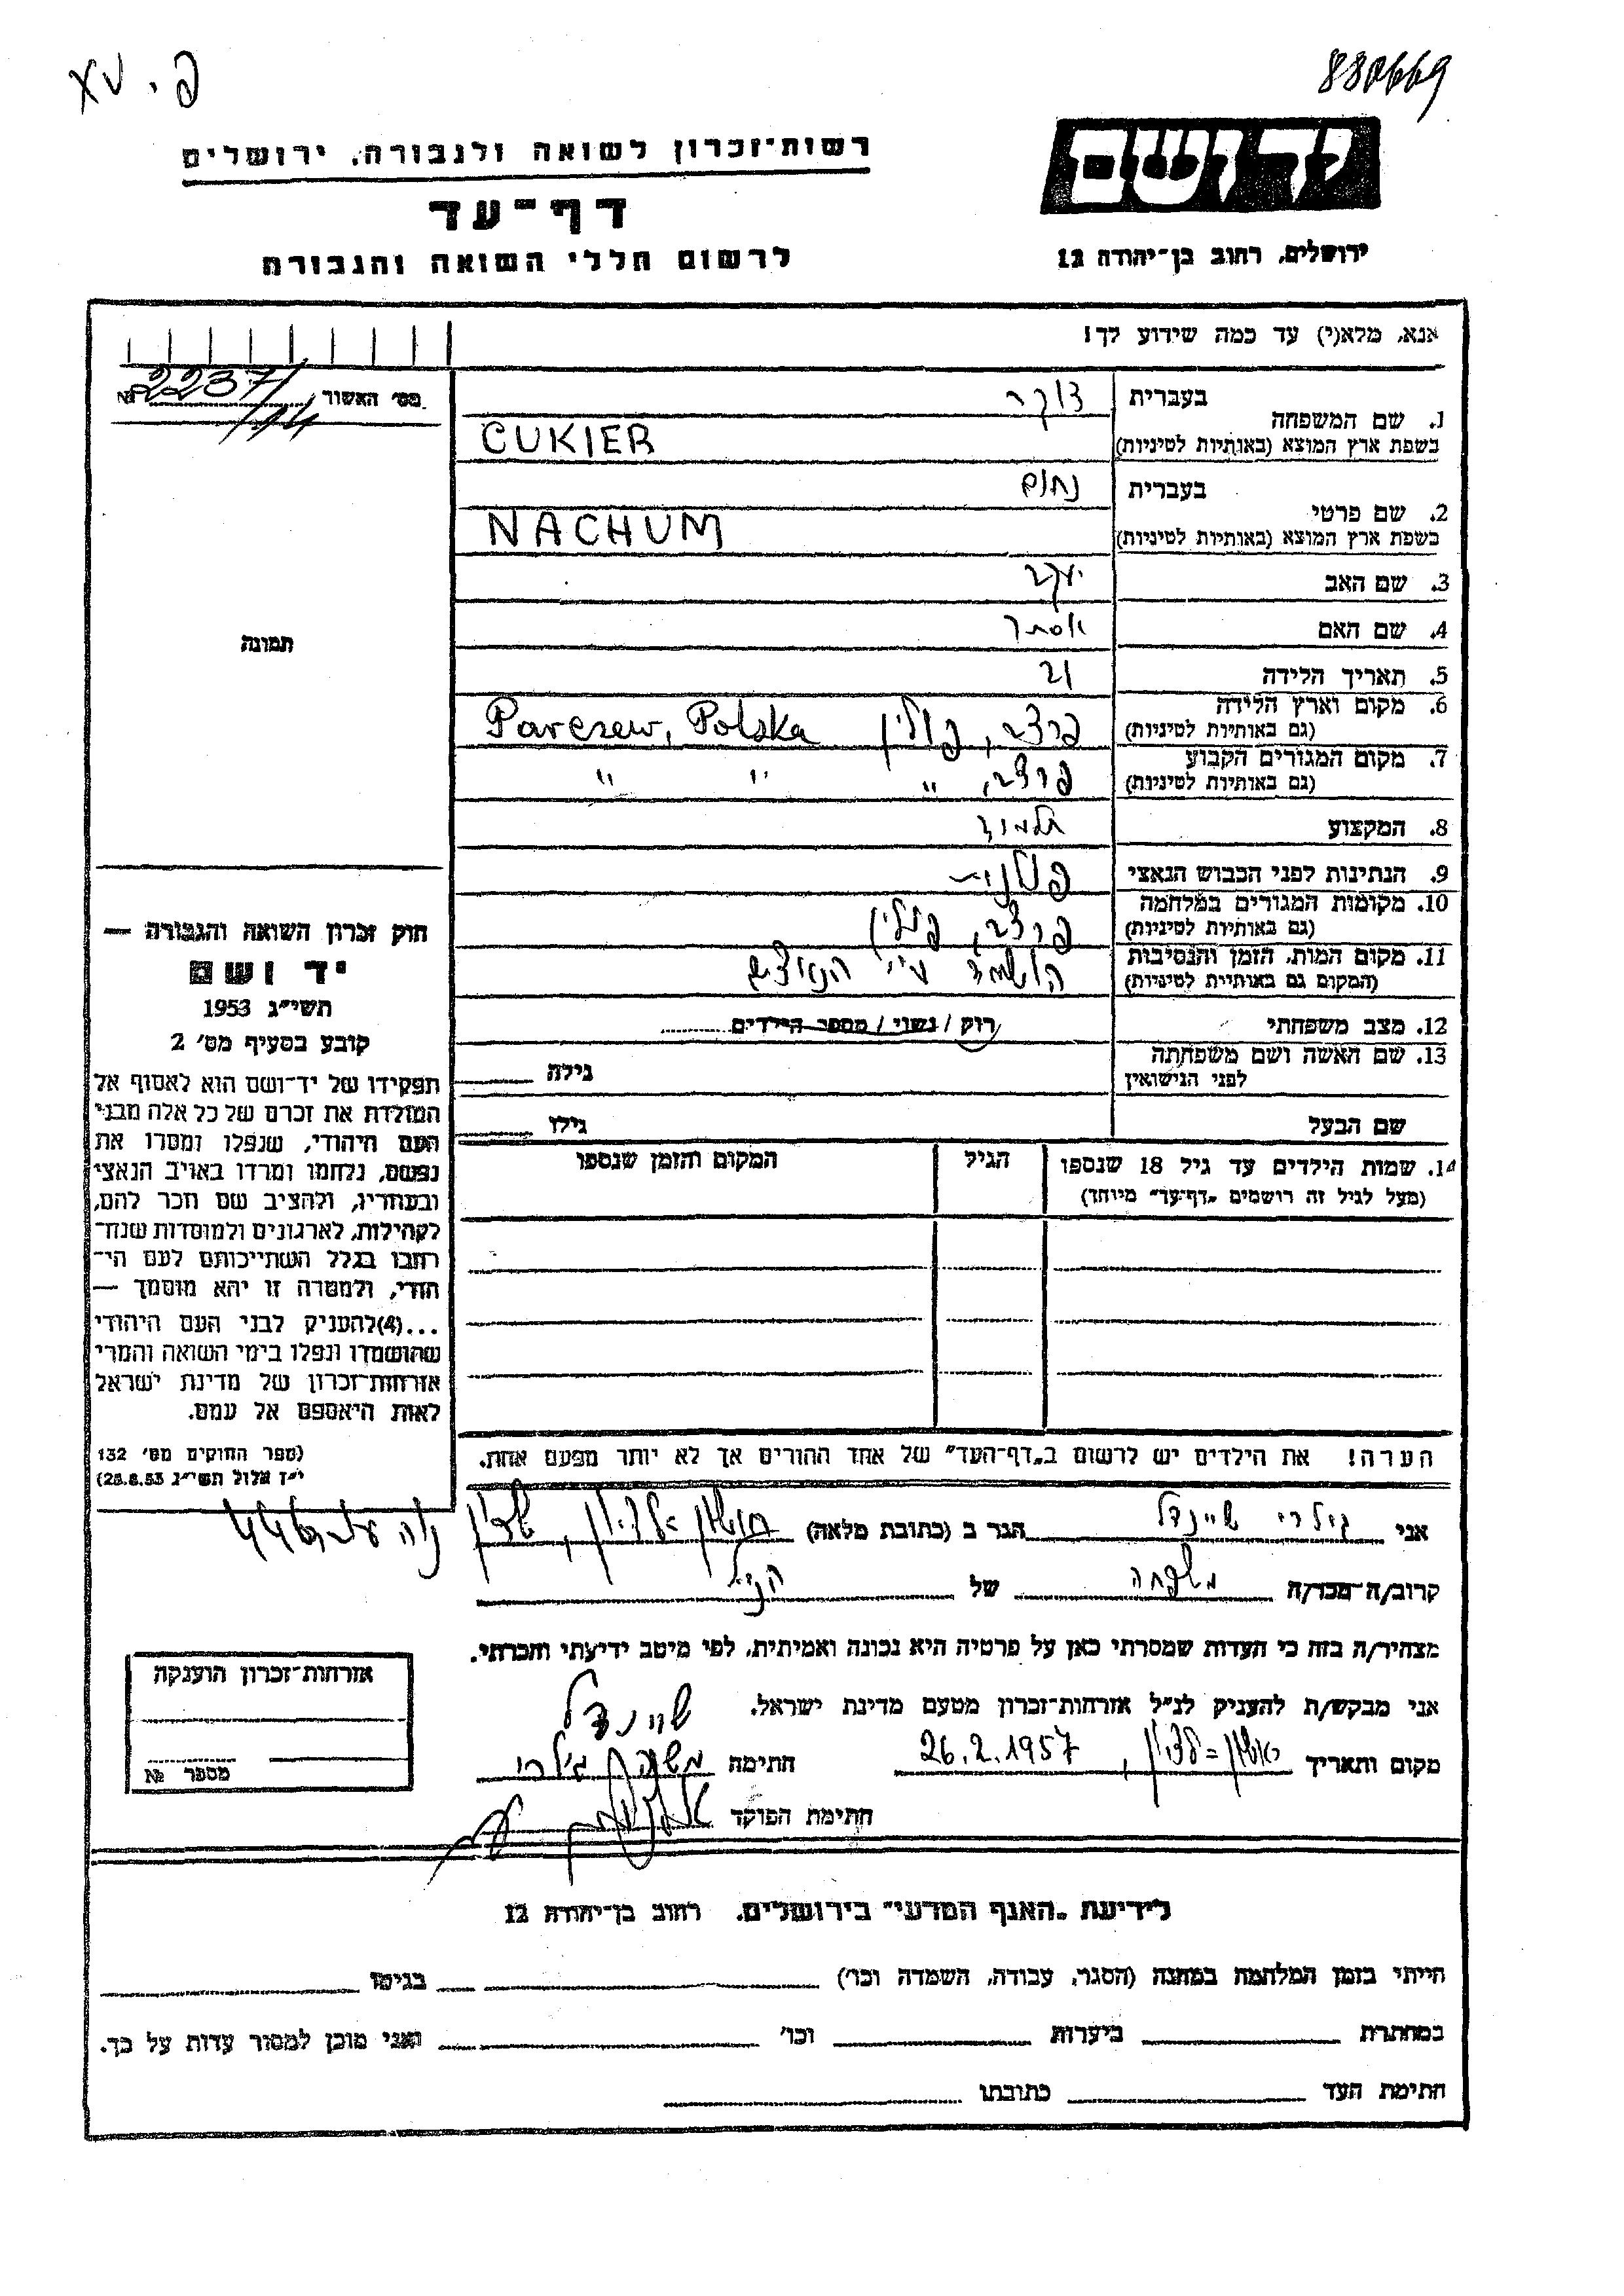 880669
יד ושם
ירושלים, רחוב בן־יהודה 12
רשות־זכרון לשואה ולגבורה, ירושלים
דף־עד
לרשום חללי השואה והגבורה
אנא, מלא(י) עד כמה שידוע לך!
מס׳ האשור № 2237/114
1. שם המשפחה בעברית צוקר
בשפת ארץ המוצא (באותיות לטיניות) CUKIER
2. שם פרטי בעברית נחום
בשפת ארץ המוצא (באותיות לטיניות) NACHUM
3. שם האב יעקב
4. שם האם אסתר
5. תאריך הלידה 21
6. מקום וארץ הלידה
(גם באותיות לטיניות) פרצב, פולין Parczew, Polska
7. מקום המגורים הקבוע
(גם באותיות לטיניות) פרצב, " " "
8. המקצוע תלמיד
9. הנתינות לפני הכבוש הנאצי פולנית
10. מקומות המגורים במלחמה
(גם באותיות לטיניות) פרצב, פולין
11. מקום המות, הזמן והנסיבות
(המקום גם באותיות לטיניות) הושמד ע״י הנאצים
12. מצב משפחתי רוק / נשוי / מספר הילדים
13. שם האשה ושם משפחתה
לפני הנישואין גילה
שם הבעל גילו
14. שמות הילדים עד גיל 18 שנספו הגיל המקום והזמן שנספו
(מעל לגיל זה רושמים „דף־עד״ מיוחד)
הערה! את הילדים יש לרשום ב„דף־העד״ של אחד ההורים אך לא יותר מפעם אחת.
תמונה
חוק זכרון השואה והגבורה —
יד ושם
תשי״ג 1953
קובע בסעיף מס׳ 2
תפקידו של יד־ושם הוא לאסוף אל
המולדת את זכרם של כל אלה מבני
העם היהודי, שנפלו ומסרו את
נפשם, נלחמו ומרדו באויב הנאצי
ובעוזריו, ולהציב שם וזכר להם,
לקהילות, לארגונים ולמוסדות שנח־
רבו בגלל השתייכותם לעם הי־
הודי, ולמטרה זו יהא מוסמך —
...(4)להעניק לבני העם היהודי
שהושמדו ונפלו בימי השואה והמרי
אזרחות־זכרון של מדינת ישראל
לאות היאספם אל עמם.
(ספר החוקים מס׳ 132
י״ז אלול תשי״ג 28.8.53)
אני גילרי שיינדל הגר ב (כתובת מלאה) ראשון לציון,
קרוב/ה־מכר/ה משפחה של הנ״ל
מצהיר/ה בזה כי העדות שמסרתי כאן על פרטיה היא נכונה ואמיתית, לפי מיטב ידיעתי והכרתי.
אני מבקש/ת להעניק לנ״ל אזרחות־זכרון מטעם מדינת ישראל.
שיינדל
מקום ותאריך ראשון=לציון, 26.2.1957 חתימה גילרי
חתימת הפוקד
אזרחות־זכרון הוענקה
מספר №
לידיעת „האגף המדעי״ בירושלים, רחוב בן־יהודה 12
הייתי בזמן המלחמה במחנה (הסגר, עבודה, השמדה וכו׳) בגיטו
במחתרת ביערות וכו׳ ואני מוכן למסור עדות על כך.
חתימת העד כתובתו